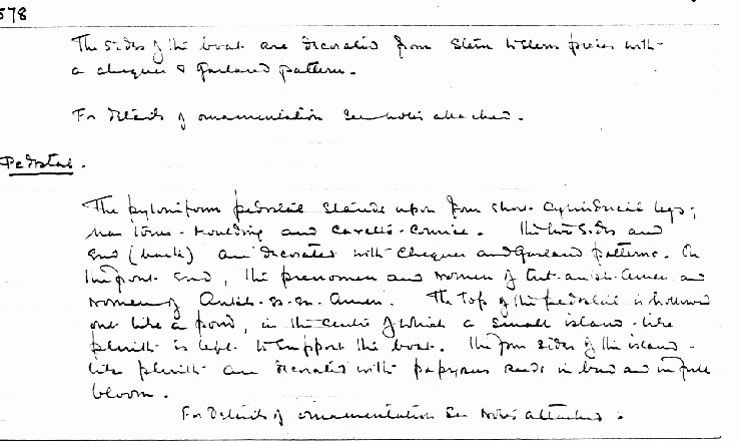 578
The sides of the boat are decorated from stem to stern pieces with
a chequer & garland pattern.
For details of ornamentation see notes attached.
Pedestal.
The pyloniform pedestal stands upon four short cylindrical legs;
has torus-moulding and cavetto-cornice. The two sides and
end (back) are decorated with chequer and garland patterns. On
the front end, the prenomen and nomen of Tut.ankh.Amen and
nomen of Ankh.es.en.Amen. The top of the pedestal is hollowed
out like a pond, in the centre of which a small island-like
plinth is left to support the boat. The four sides of the island-
like plinth are decorated with papyrus reeds in bud and in full
bloom.
For details of ornamentation see notes attached.